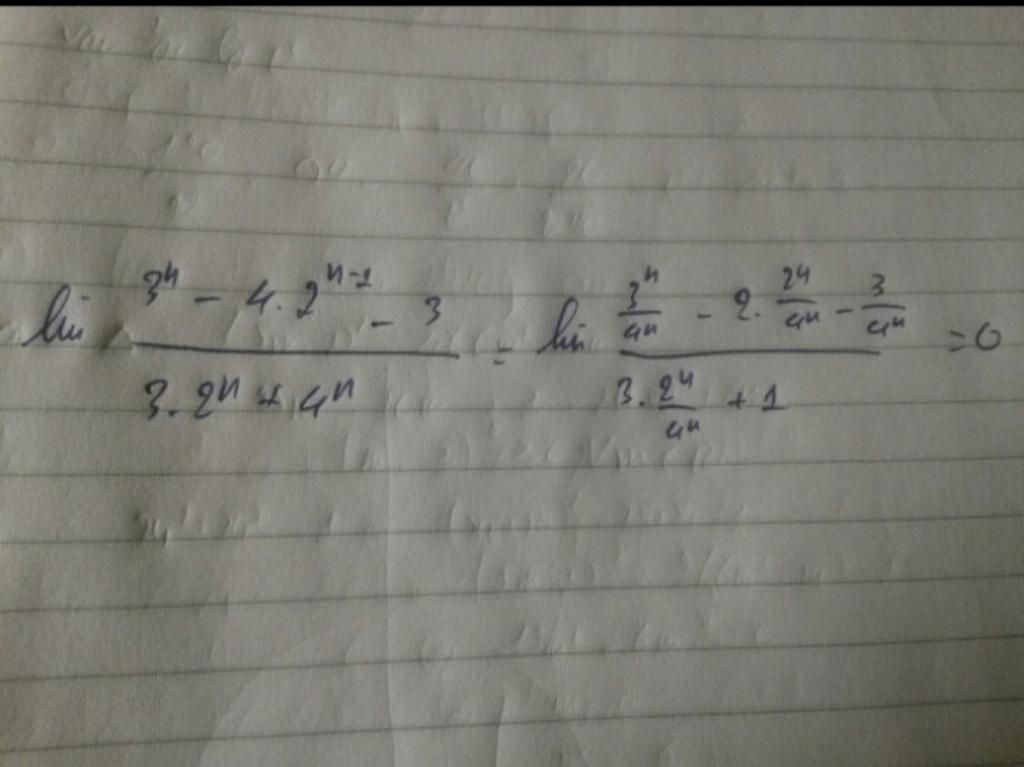 lim (3ⁿ - 4.2ⁿ⁻¹ - 3)/(3.2ⁿ + 4ⁿ) = lim (3ⁿ/4ⁿ - 2.2ⁿ/4ⁿ - 3/4ⁿ)/(3.2ⁿ/4ⁿ + 1) = 0